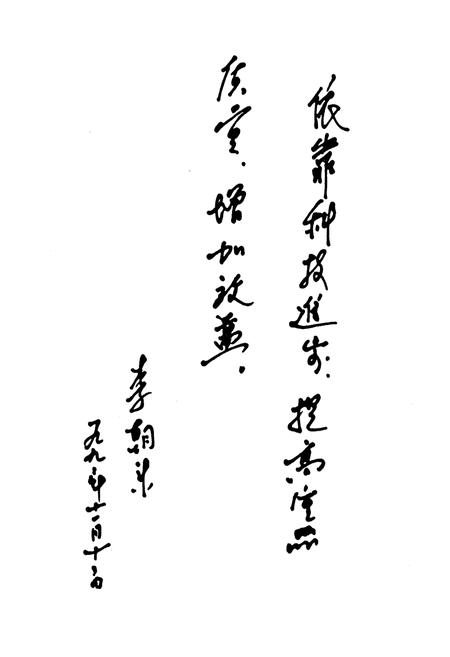 依靠科技進步,提高產品
质量,增加效益。
李朝
一九九年十一月十二日